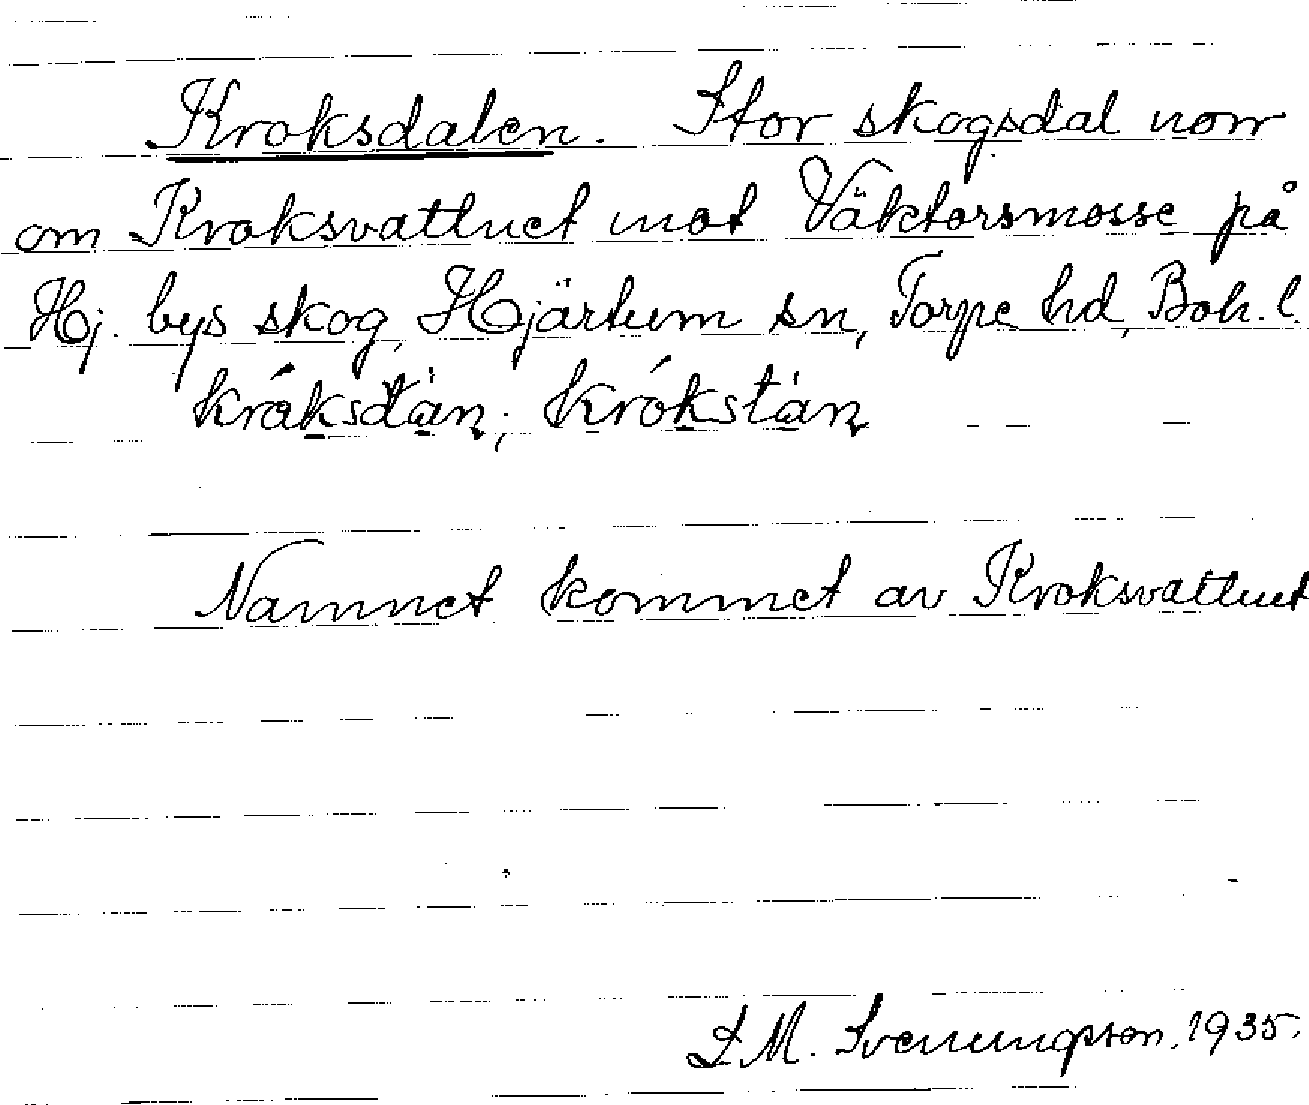 Kroksdalen. Stor skogsdal norr
om Kroksvattnet mot Väktorsmosse på
Hj. bys skog, Hjärtum sn, Torpe hd, Boh. l.
Namnet kommet av Kroksvattnet
S. M. Svenungsson. 1935.